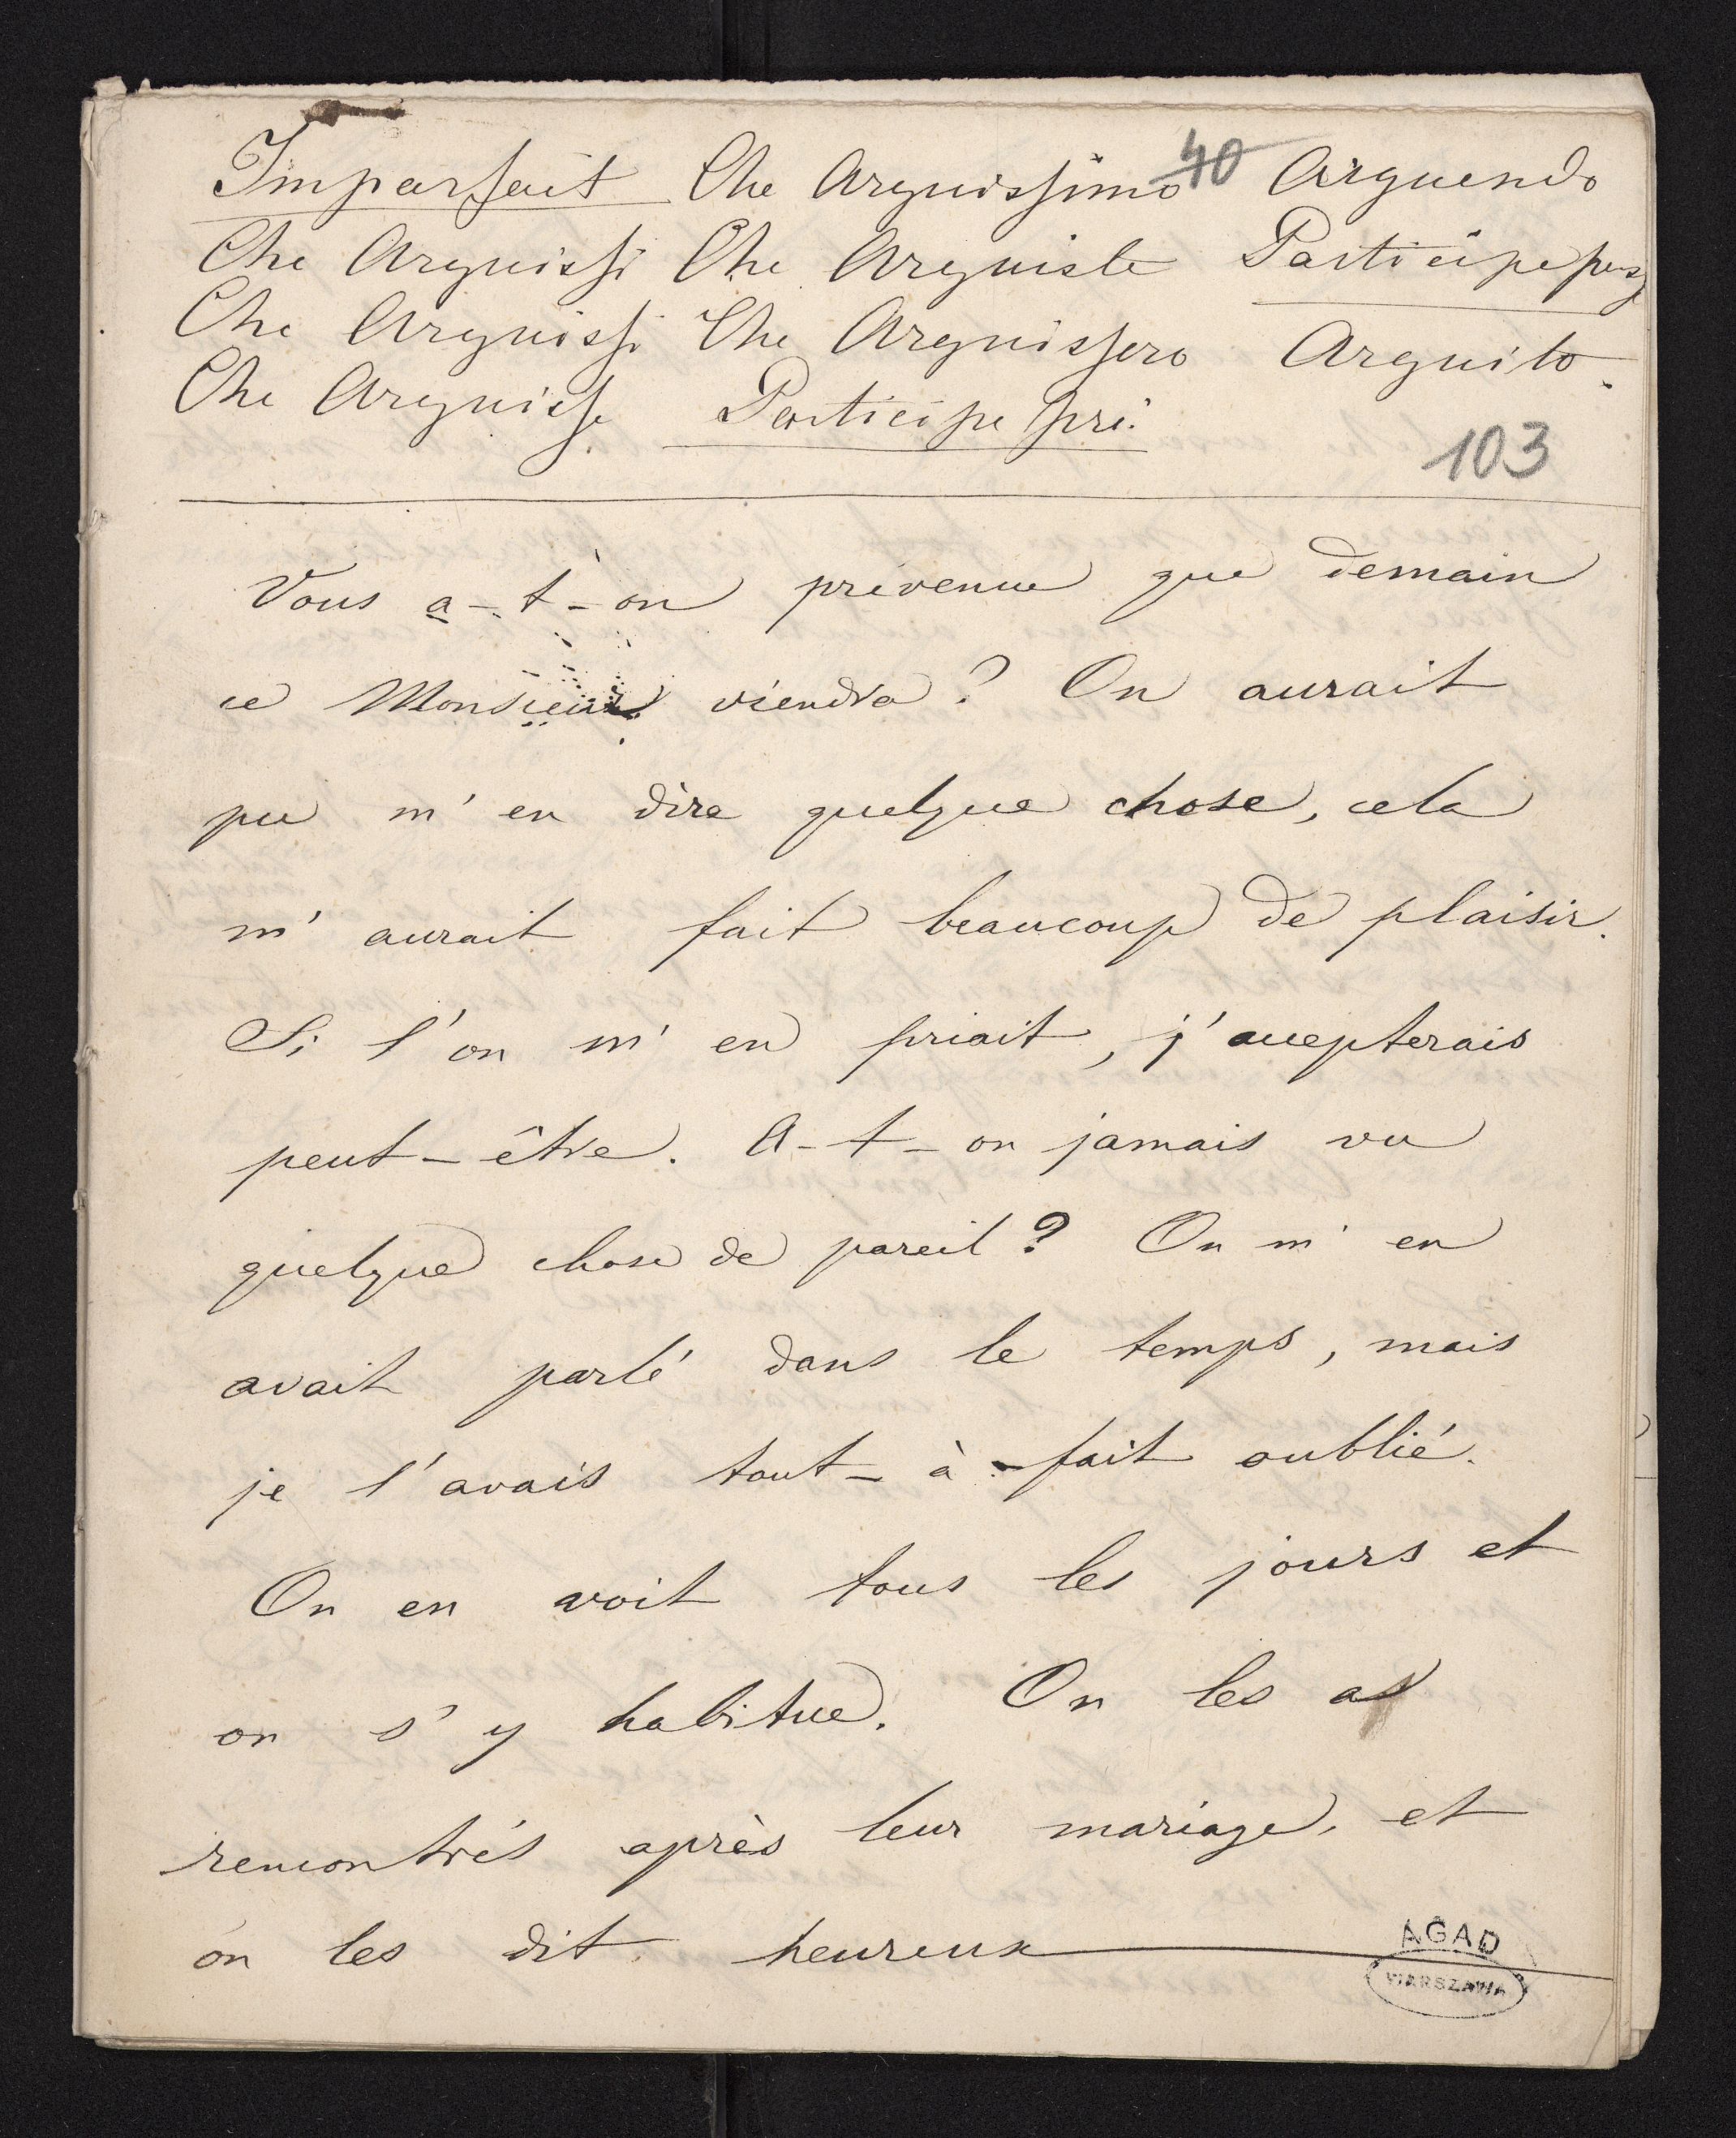 Imparfait Che Arguissimo 40 Arguendo
Che Arguissi Che Arguiste Participe pas
Che Arguissi Che Arguissero Arguito.
Che Arguisse Participe pré.
103
Vous a-t-on prévenue que demain
ce Monsieur viendra? On aurait
pu m'en dire quelque chose, cela
m'aurait fait beaucoup de plaisir.
Si l'on m'en priait, j'accepterais
peut-être. A-t-on jamais vu
quelque chose de pareil? On m'en
avait parlé dans le temps, mais
je l'avais tout-à-fait oublié.
On en voit tous les jours et
on s'y habitue. On les a
rencontrés après leur mariage, et
on les dit heureux
AGAD
WARSZAWA